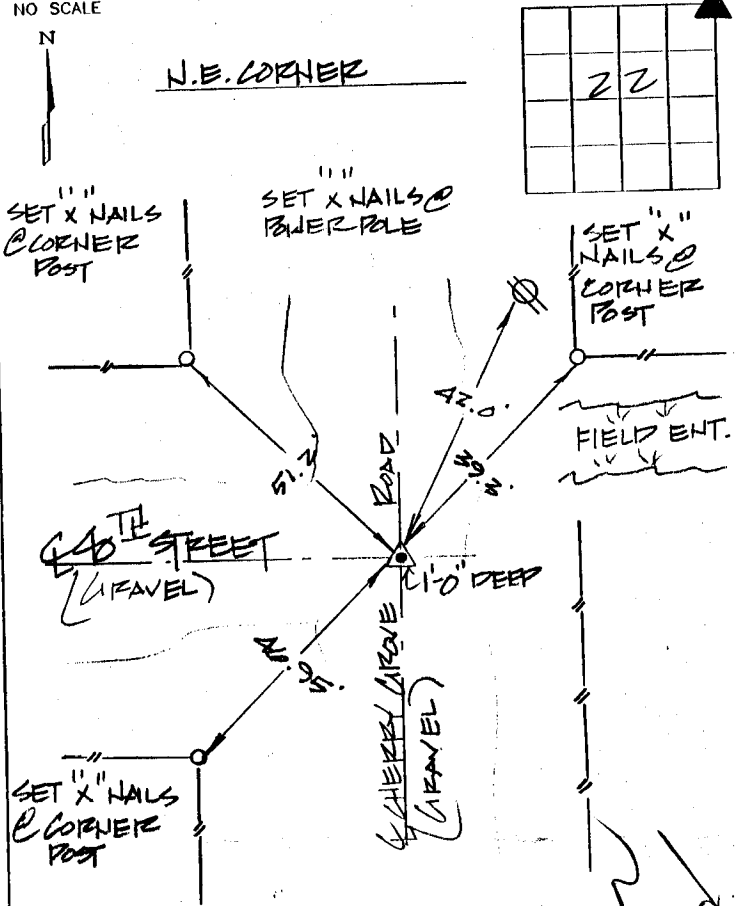 NO SCALE
N
N.E. CORNER
22
SET "X" NAILS
@ CORNER
POST
SET "X" NAILS @
POWER POLE
SET "X"
NAILS @
CORNER
POST
42.0'
39.3'
51.2'
FIELD ENT.
ROAD
℄ 40TH STREET
(GRAVEL)
1'-0" DEEP
46.95'
℄ CHERRY GROVE
(GRAVEL)
SET "X" NAILS
@ CORNER
POST